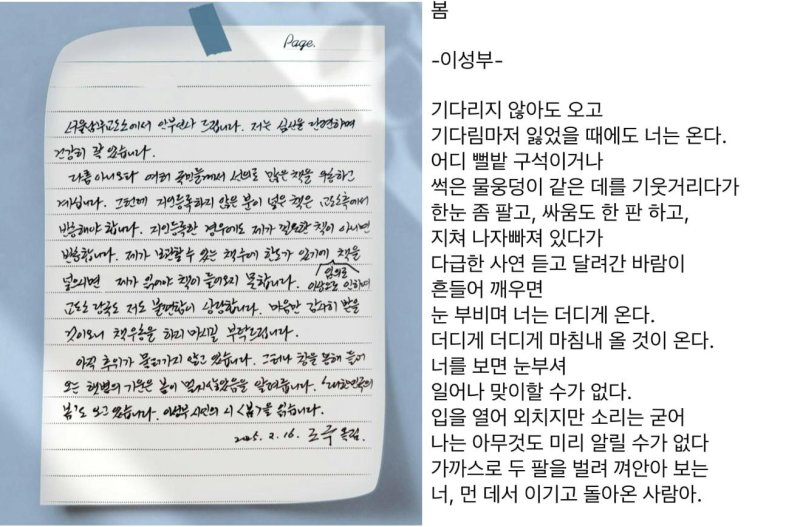 Page.
서울남부교도소에서 안부인사 드립니다. 저는 심신을 단련하며
건강히 잘 있습니다.
다름 아니오라 여러 국민들께서 선의로 많은 책을 우송하고
계십니다. 그런데 지인등록하지 않은 분이 넣은 책은 교도소측에서
반송해야 합니다. 지인등록한 경우에도 제가 필요한 책이 아니면
반송합니다. 제가 보관할 수 있는 책수에 한도가 있기에 책을
임의로
넣으시면 제가 읽어야 책이 들어오지 못합니다. 이상으로 인하여
교도소 당국도 저도 불편함이 상당합니다. 마음만 감사히 받을
것이오니 책 우송을 하지 마시길 부탁드립니다.
아직 추위가 물러가지 않고 있습니다. 그러나 창을 통해 들어
오는 햇볕의 기운은 봄이 멀지 않았음을 알려줍니다. '대한민국의
봄'도 오고 있습니다. 이성부 시인의 시 <봄>을 읽습니다.
2025. 2. 16. 조국 올림.
봄
-이성부-
기다리지 않아도 오고
기다림마저 잃었을 때에도 너는 온다.
어디 뻘밭 구석이거나
썩은 물웅덩이 같은 데를 기웃거리다가
한눈 좀 팔고, 싸움도 한 판 하고,
지쳐 나자빠져 있다가
다급한 사연 듣고 달려간 바람이
흔들어 깨우면
눈 부비며 너는 더디게 온다.
더디게 더디게 마침내 올 것이 온다.
너를 보면 눈부셔
일어나 맞이할 수가 없다.
입을 열어 외치지만 소리는 굳어
나는 아무것도 미리 알릴 수가 없다
가까스로 두 팔을 벌려 껴안아 보는
너, 먼 데서 이기고 돌아온 사람아.